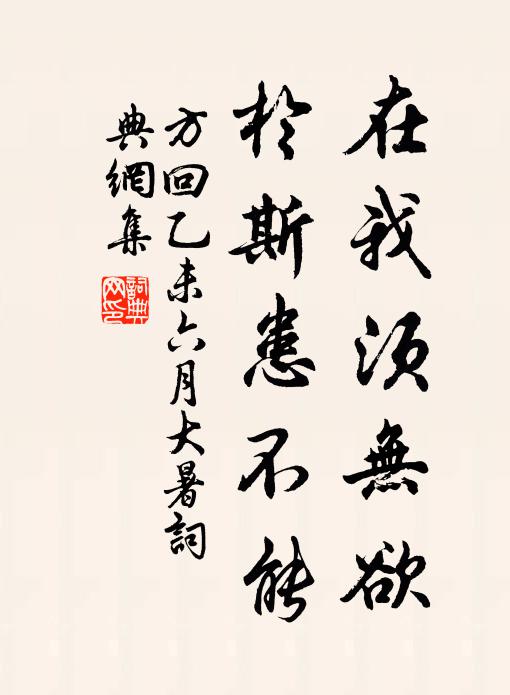 在我須無欲
於斯患不能
方回乙未六月大暑詞
典網集
詞典
网印